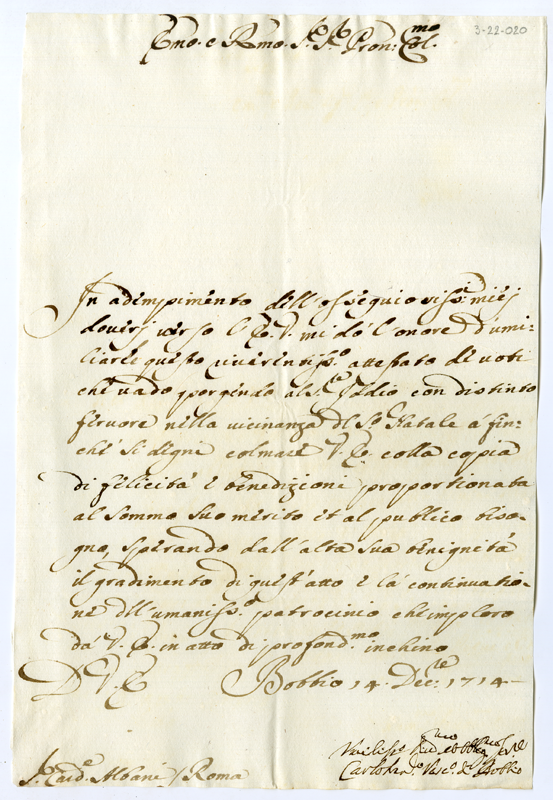 3-22-020
Emo. e Rmo. Sr. Pron: Col.mo
In adempimento dell'ossequiosiss.i miei
doveri verso l'E. V. mi dò l'onore d'umi-
liarle questo riverentiss.o attestato de voti
che vado porgendo al S.r Iddio con distinto
fervore nella vicinanza del S.o Natale à fin:
chè si degni colmare V. E. colla copia
di felicità e benedizioni proportionata
al sommo suo merito et al publico biso-
gno, sperando dall'alta sua benignità
il gradimento di quest'atto e la continuatio-
ne dell'umaniss.o patrocinio che imploro
da V. E. in atto di profond.mo inchino
D V. E. Bobbio 14. Dec.re 1714
Umiliss.o
Sr. Card.e Albani / Roma Vesc.o di Bobbio